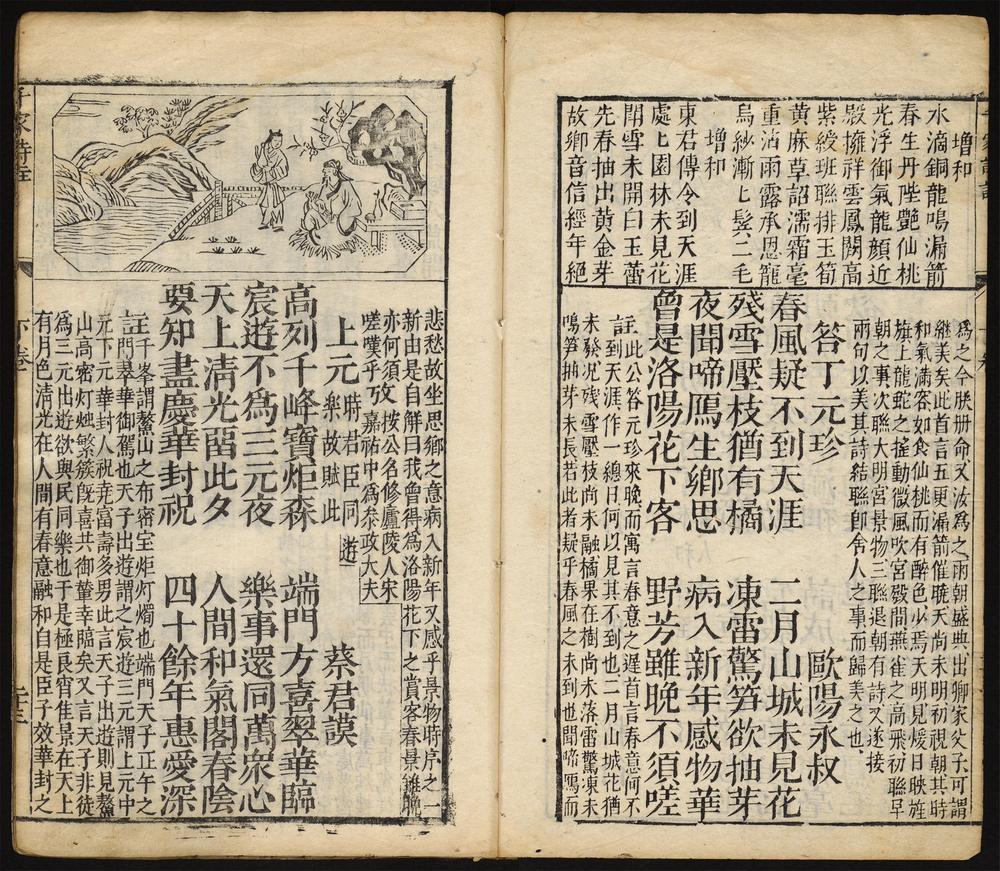 增和
水滴銅龍鳴漏箭
春生丹陛艷仙桃
光浮御氣龍顔近
殿擁祥雲鳳闕高
紫綬班聯排玉筍
黄麻草詔濡霜毫
重沾雨露承恩寵
烏紗漸上髩二毛
增和
東君傳令到天涯
處上園林未見花
閉雪未開白玉蕾
先春抽出黄金芽
故鄉音信經年絶
爲之今朕册命又汝爲之兩朝盛典出卿家父子可謂
継美矣此首言五更漏箭催曉天尚未明初視朝其時
和氣滿容如食仙桃而有醉色少焉天明見煖日映旌
旂上龍蛇之搖動微風吹宫殿間燕雀之高飛初聯早
朝之事次聯大明宫景物三聯退朝有詩又遂接
兩句以美其詩結聯郎舍人之事而歸美之也
答丁元珍 歐陽永叔
春風疑不到天涯 二月山城未見花
殘雪壓枝猶有橘 凍雷驚笋欲抽芽
夜聞啼鴈生鄉思 病入新年感物華
曾是洛陽花下客 野芳雖晚不須嗟
註此公答元珍來晚而寓言春意之遲首言春意何不
到天涯作一總曰何以見其不到也二月山城花猶
未發况殘雪壓枝尚未融橘果在樹尚未落雷驚凍未
鳴笋抽芽未長若此者疑乎春風之未到也聞啼鴈而
悲愁故坐思鄉之意病入新年又感乎景物時序之一
新由是自解曰我曾得爲洛陽花下之賞客春景雖晚
亦何須攷按公名修廬陵人宋
嗟嘆乎攷嘉祐中爲叅政大夫
上元時君臣同遊樂故賦此 蔡君謨
高列千峰寶炬森 端門方喜翠華臨
宸遊不爲三元夜 樂事還同萬衆心
天上淸光留此夕 人間和氣閣春陰
要知盡慶華封祝 四十餘年惠愛深
註千峯謂鰲山之布密宝炬灯燭也端門天子正午之
門翠華御駕也天子出遊謂之宸遊三元謂上元中
元下元華封人祝尭富壽多男此言天子出遊則見鰲
山高密灯燃繁簇旣喜共御輦幸臨矣又言天子非徒
爲三元出遊欲與民同樂也于是極良宵佳景在天上
有月色清光在人間有春意融和自是臣子效華封之
下卷